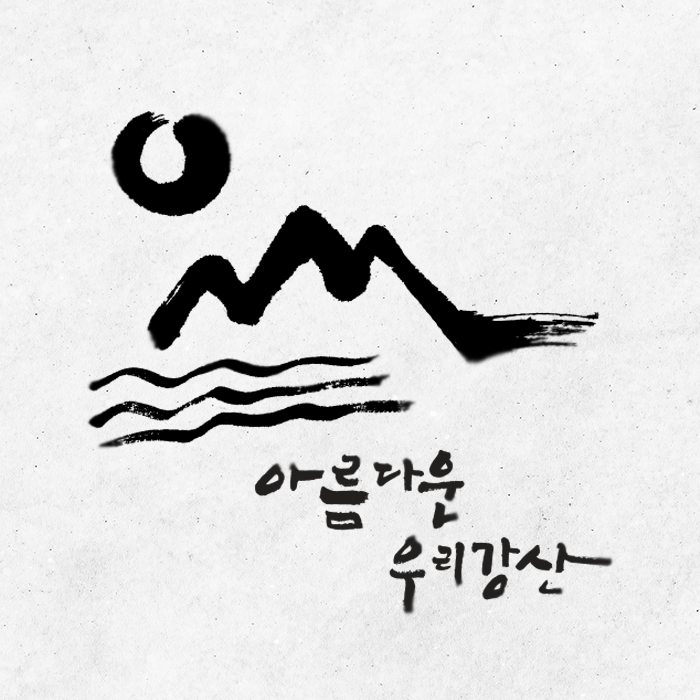 아름다운
우리강산